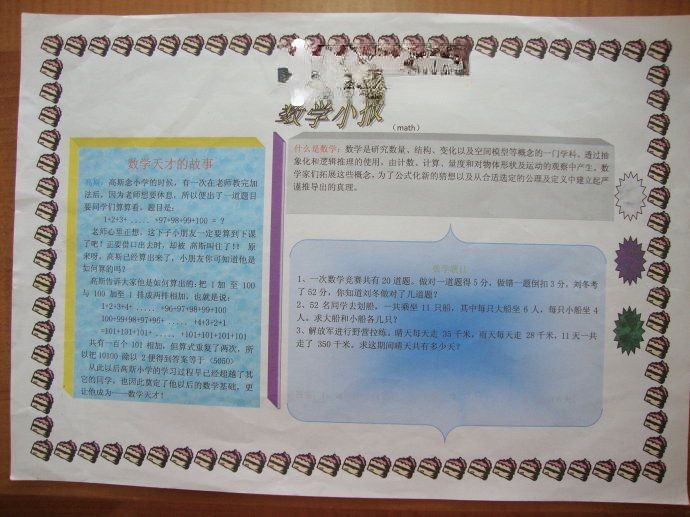 数学小报
(math)
数学天才的故事
高斯：高斯念小学的时候，有一次在老师教完加
法后，因为老师想要休息，所以便出了一道题目
要同学们算算看，题目是：
1+2+3+ ..... +97+98+99+100 = ?
老师心里正想，这下子小朋友一定要算到下课
了吧！正要借口出去时，却被 高斯叫住了！！ 原
来呀，高斯已经算出来了，小朋友你可知道他是
如何算的吗？
高斯告诉大家他是如何算出的：把 1 加 至 100
与 100 加至 1 排成两排相加，也就是说：
1+2+3+4+ ..... +96+97+98+99+100
100+99+98+97+96+ ..... +4+3+2+1
=101+101+101+ ..... +101+101+101+101
共有一百个 101 相加，但算式重复了两次，所
以把 10100 除以 2 便得到答案等于 <5050>
从此以后高斯小学的学习过程早已经超越了其
它的同学，也因此奠定了他以后的数学基础，更
让他成为——数学天才！
什么是数学：数学是研究数量、结构、变化以及空间模型等概念的一门学科。透过抽
象化和逻辑推理的使用，由计数、计算、量度和对物体形状及运动的观察中产生。数
学家们拓展这些概念，为了公式化新的猜想以及从合适选定的公理及定义中建立起严
谨推导出的真理。
1、一次数学竞赛共有 20 道题。做对一道题得 5 分，做错一题倒扣 3 分，刘冬考
了 52 分，你知道刘冬做对了几道题？
2、52 名同学去划船，一共乘坐 11 只船，其中每只大船坐 6 人，每只小船坐 4
人。求大船和小船各几只？
3、解放军进行野营拉练。晴天每天走 35 千米，雨天每天走 28 千米，11 天一共
走了 350 千米。求这期间晴天共有多少天？